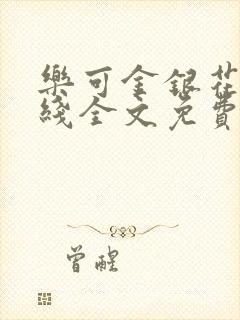 樂可金銀花
綫全文免費
曾醒